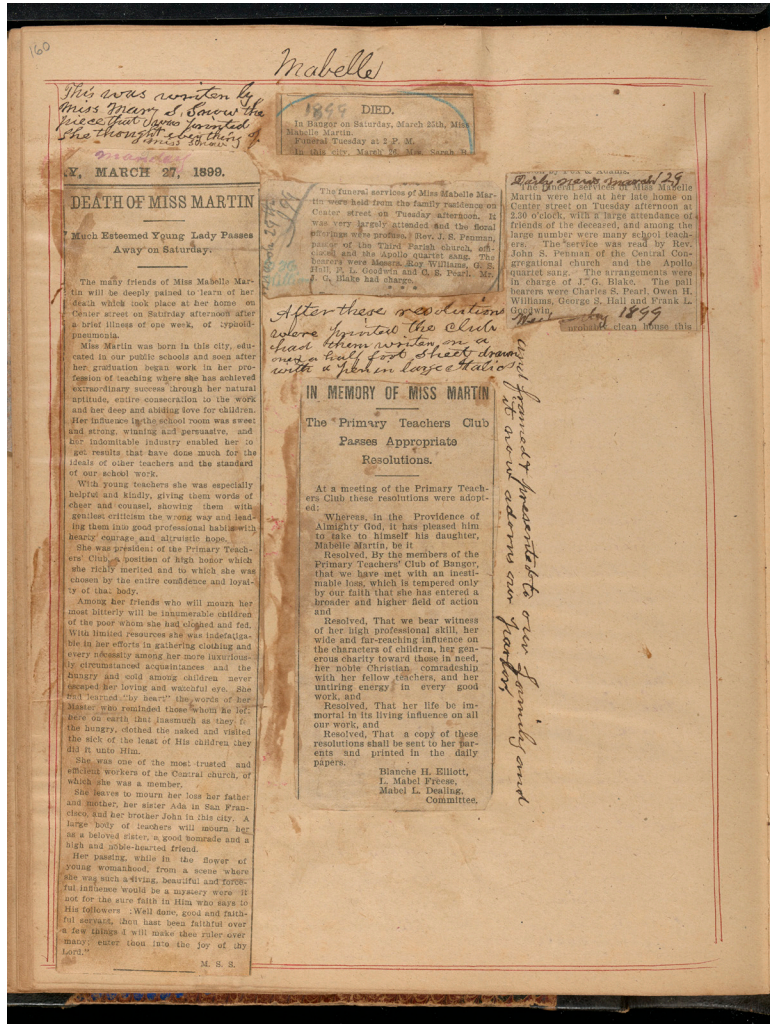 160
Mabelle
This was written by
Miss Mary S. Snow the
piece that was printed
She thought everything of
Manday
Y, MARCH 27, 1899.
DEATH OF MISS MARTIN
Much Esteemed Young Lady Passes
Away on Saturday.
The many friends of Miss Mabelle Mar-
tin will be deeply pained to learn of her
death which took place at her home on
Center street on Saturday afternoon after
a brief illness of one week, of typhoid-
pneumonia.
Miss Martin was born in this city, edu-
cated in our public schools and soon after
her graduation began work in her pro-
fession of teaching where she has achieved
extraordinary success through her natural
aptitude, entire consecration to the work
and her deep and abiding love for children.
Her influence in the school room was sweet
and strong, winning and persuasive, and
her indomitable industry enabled her to
get results that have done much for the
ideals of other teachers and the standard
of our school work.
With young teachers she was especially
helpful and kindly, giving them words of
cheer and counsel, showing them with
gentlest criticism the wrong way and lead-
ing them into good professional habits with
hearty courage and altruistic hope.
She was president of the Primary Teach-
ers' Club, a position of high honor which
she richly merited and to which she was
chosen by the entire confidence and loyal-
ty of that body.
Among her friends who will mourn her
most bitterly will be innumerable children
of the poor whom she had clothed and fed.
With limited resources she was indefatiga-
ble in her efforts in gathering clothing and
every necessity among her more luxurious-
ly circumstanced acquaintances and the
hungry and cold among children never
escaped her loving and watchful eye. She
had learned "by heart" the words of her
Master who reminded those whom he left
here on earth that inasmuch as they f
the hungry, clothed the naked and visited
the sick of the least of His children they
did it unto Him.
She was one of the most trusted and
efficient workers of the Central church, of
which she was a member.
She leaves to mourn her loss her father
and mother, her sister Ada in San Fran-
cisco, and her brother John in this city. A
large body of teachers will mourn her
as a beloved sister, a good comrade and a
high and noble-hearted friend.
Her passing, while in the flower of
young womanhood, from a scene where
she was such a living, beautiful and force-
ful influence would be a mystery were it
not for the sure faith in Him who says to
His followers: "Well done, good and faith-
ful servant, thou hast been faithful over
a few things I will make thee ruler over
many; enter thou into the joy of thy
Lord."
M. S. S.
1899
DIED.
In Bangor on Saturday, March 25th, Miss
Mabelle Martin.
Funeral Tuesday at 2 P. M.
In this city, March
The funeral services of Miss Mabelle Mar-
tin were held from the family residence on
Center street on Tuesday afternoon. It
was very largely attended and the floral
offerings were profuse. Rev. J. S. Penman,
pastor of the Third Parish church, offi-
ciated and the Apollo quartet sang. The
bearers were Messrs. Roy Williams, G. S.
Hall, F. L. Goodwin and C. S. Pearl. Mr.
J. G. Blake had charge.
Daily news march 29
The funeral services of Miss Mabelle
Martin were held at her late home on
Center street on Tuesday afternoon at
2.30 o'clock, with a large attendance of
friends of the deceased, and among the
large number were many school teach-
ers. The service was read by Rev.
John S. Penman of the Central Con-
gregational church and the Apollo
quartet sang. The arrangements were
in charge of J. G. Blake. The pall
bearers were Charles S. Pearl, Owen H.
Williams, George S. Hall and Frank L.
Goodwin.
1899
clean house this
After these resolutions
were printed the club
had them written on a
one & a half foot sheet drawn
with a pen in large Italics
and framed & presented to our family and
it now adorns our parlor,
IN MEMORY OF MISS MARTIN
The Primary Teachers Club
Passes Appropriate
Resolutions.
At a meeting of the Primary Teach-
ers Club these resolutions were adopt-
ed:
Whereas, in the Providence of
Almighty God, it has pleased him
to take to himself his daughter,
Mabelle Martin, be it
Resolved, By the members of the
Primary Teachers' Club of Bangor,
that we have met with an inesti-
mable loss, which is tempered only
by our faith that she has entered a
broader and higher field of action
and
Resolved, That we bear witness
of her high professional skill, her
wide and far-reaching influence on
the characters of children, her gen-
erous charity toward those in need,
her noble Christian comradeship
with her fellow teachers, and her
untiring energy in every good
work, and
Resolved, That her life be im-
mortal in its living influence on all
our work, and
Resolved, That a copy of these
resolutions shall be sent to her par-
ents and printed in the daily
papers.
Blanche H. Elliott,
L. Mabel Freese,
Mabel L. Dealing,
Committee.